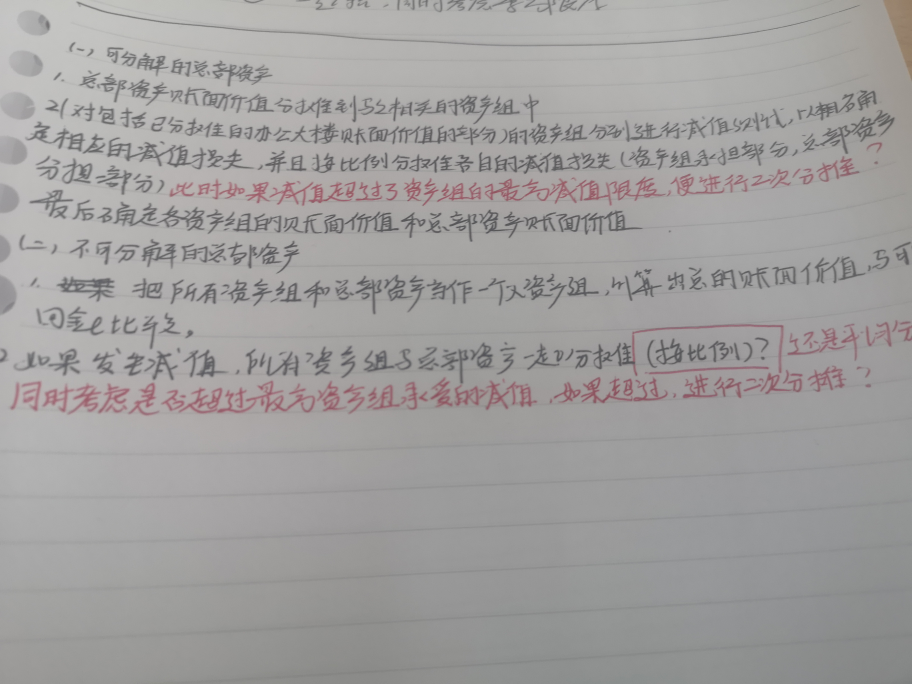 (一)可分解的总部资产
1. 总部资产账面价值分摊到与之相关的资产组中
2(对包括已分摊的办公大楼账面价值的部分)的资产组分别进行减值测试,以确
定相应的减值损失,并且按比例分摊各自的减值损失(资产组承担部分,总部资产
分担一部分)此时如果减值超过了资产组的最高减值限度,便进行二次分摊?
最后确定各资产组的账面价值和总部资产账面价值
(二)不可分解的总部资产
1. 把所有资产组和总部资产当作一个大资产组,计算出总的账面价值,与可
回金e比较,
如果发生减值,所有资产组与总部资产一起分摊(按比例)?还是平均分
同时考虑是否超过最高资产组承受的减值,如果超过,进行二次分摊?